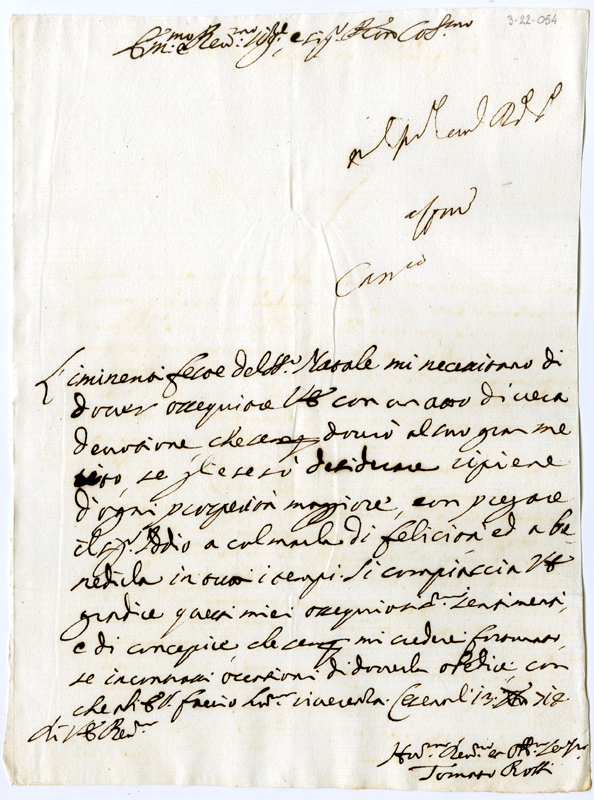 3-22-054
Em.mo e Rev.mo Sig.r e Sig.r Pron Col.mo
L'iminenti feste del SS.o Natale mi necessitano di
dover ossequiare VE con un atto di vera
devozione che sempre dovrò al suo gran me
rito, se gliele so desiderare ripiene
d'ogni prosperità maggiore, con pregare
il Sig.r Iddio a colmarla di felicità ed a be
nedirla in tutti i tempi. Si compiaccia VE
gradire questi miei ossequiosis.mi sentimenti,
e di concepire che sempre mi crederò fortunato,
se incontrassi occasioni di doverla obedire con
che all' EV. faccio hum.ma riverenza. Cesena li 13 Xbre 718
di VE Rev.ma
Hum.mo Dev.mo et Obl.mo Ser.re
Tomaso Rossi